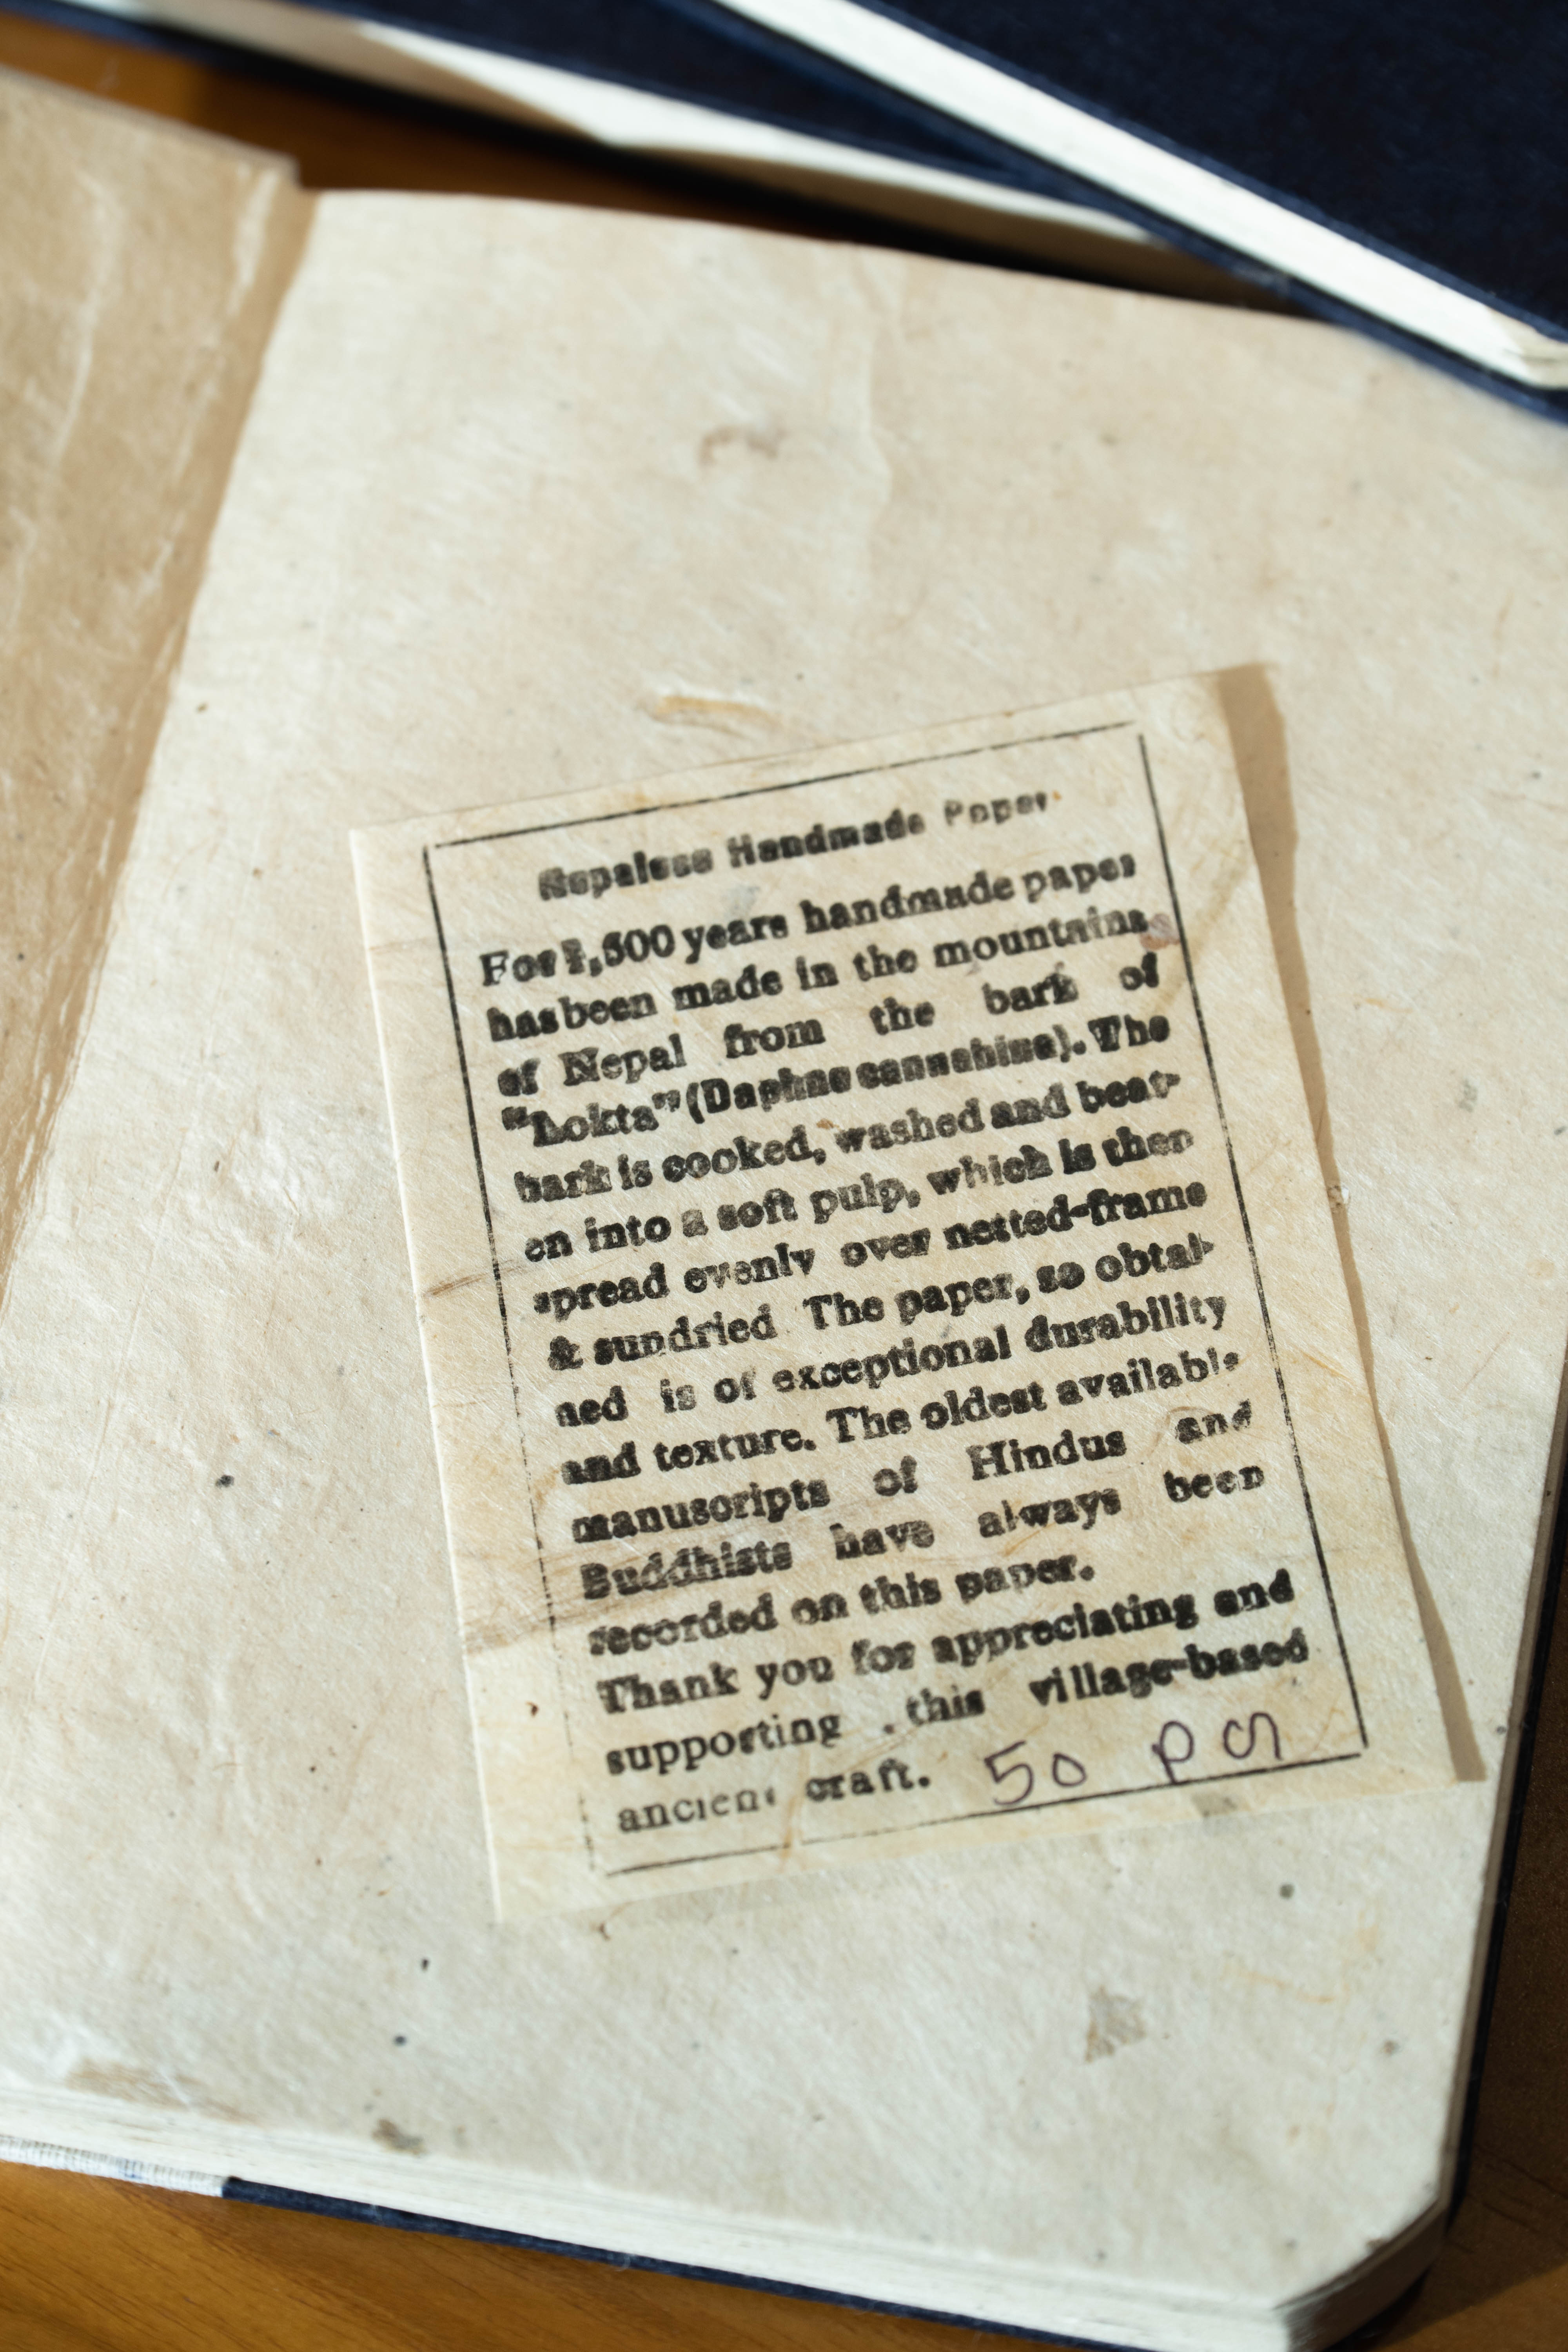 Nepalese Handmade Paper
For ,500 years handmade paper
has been made in the mountains
of Nepal from the bark of
"Lokta" (Daphne cannabina). The
bark is cooked, washed and beat-
en into a soft pulp, which is then
spread evenly over netted-frame
& sundried The paper, so obtai-
ned is of exceptional durability
and texture. The oldest available
manuscripts of Hindus and
Buddhists have always been
recorded on this paper.
Thank you for appreciating and
supporting . this village-based
ancient craft. 50 P